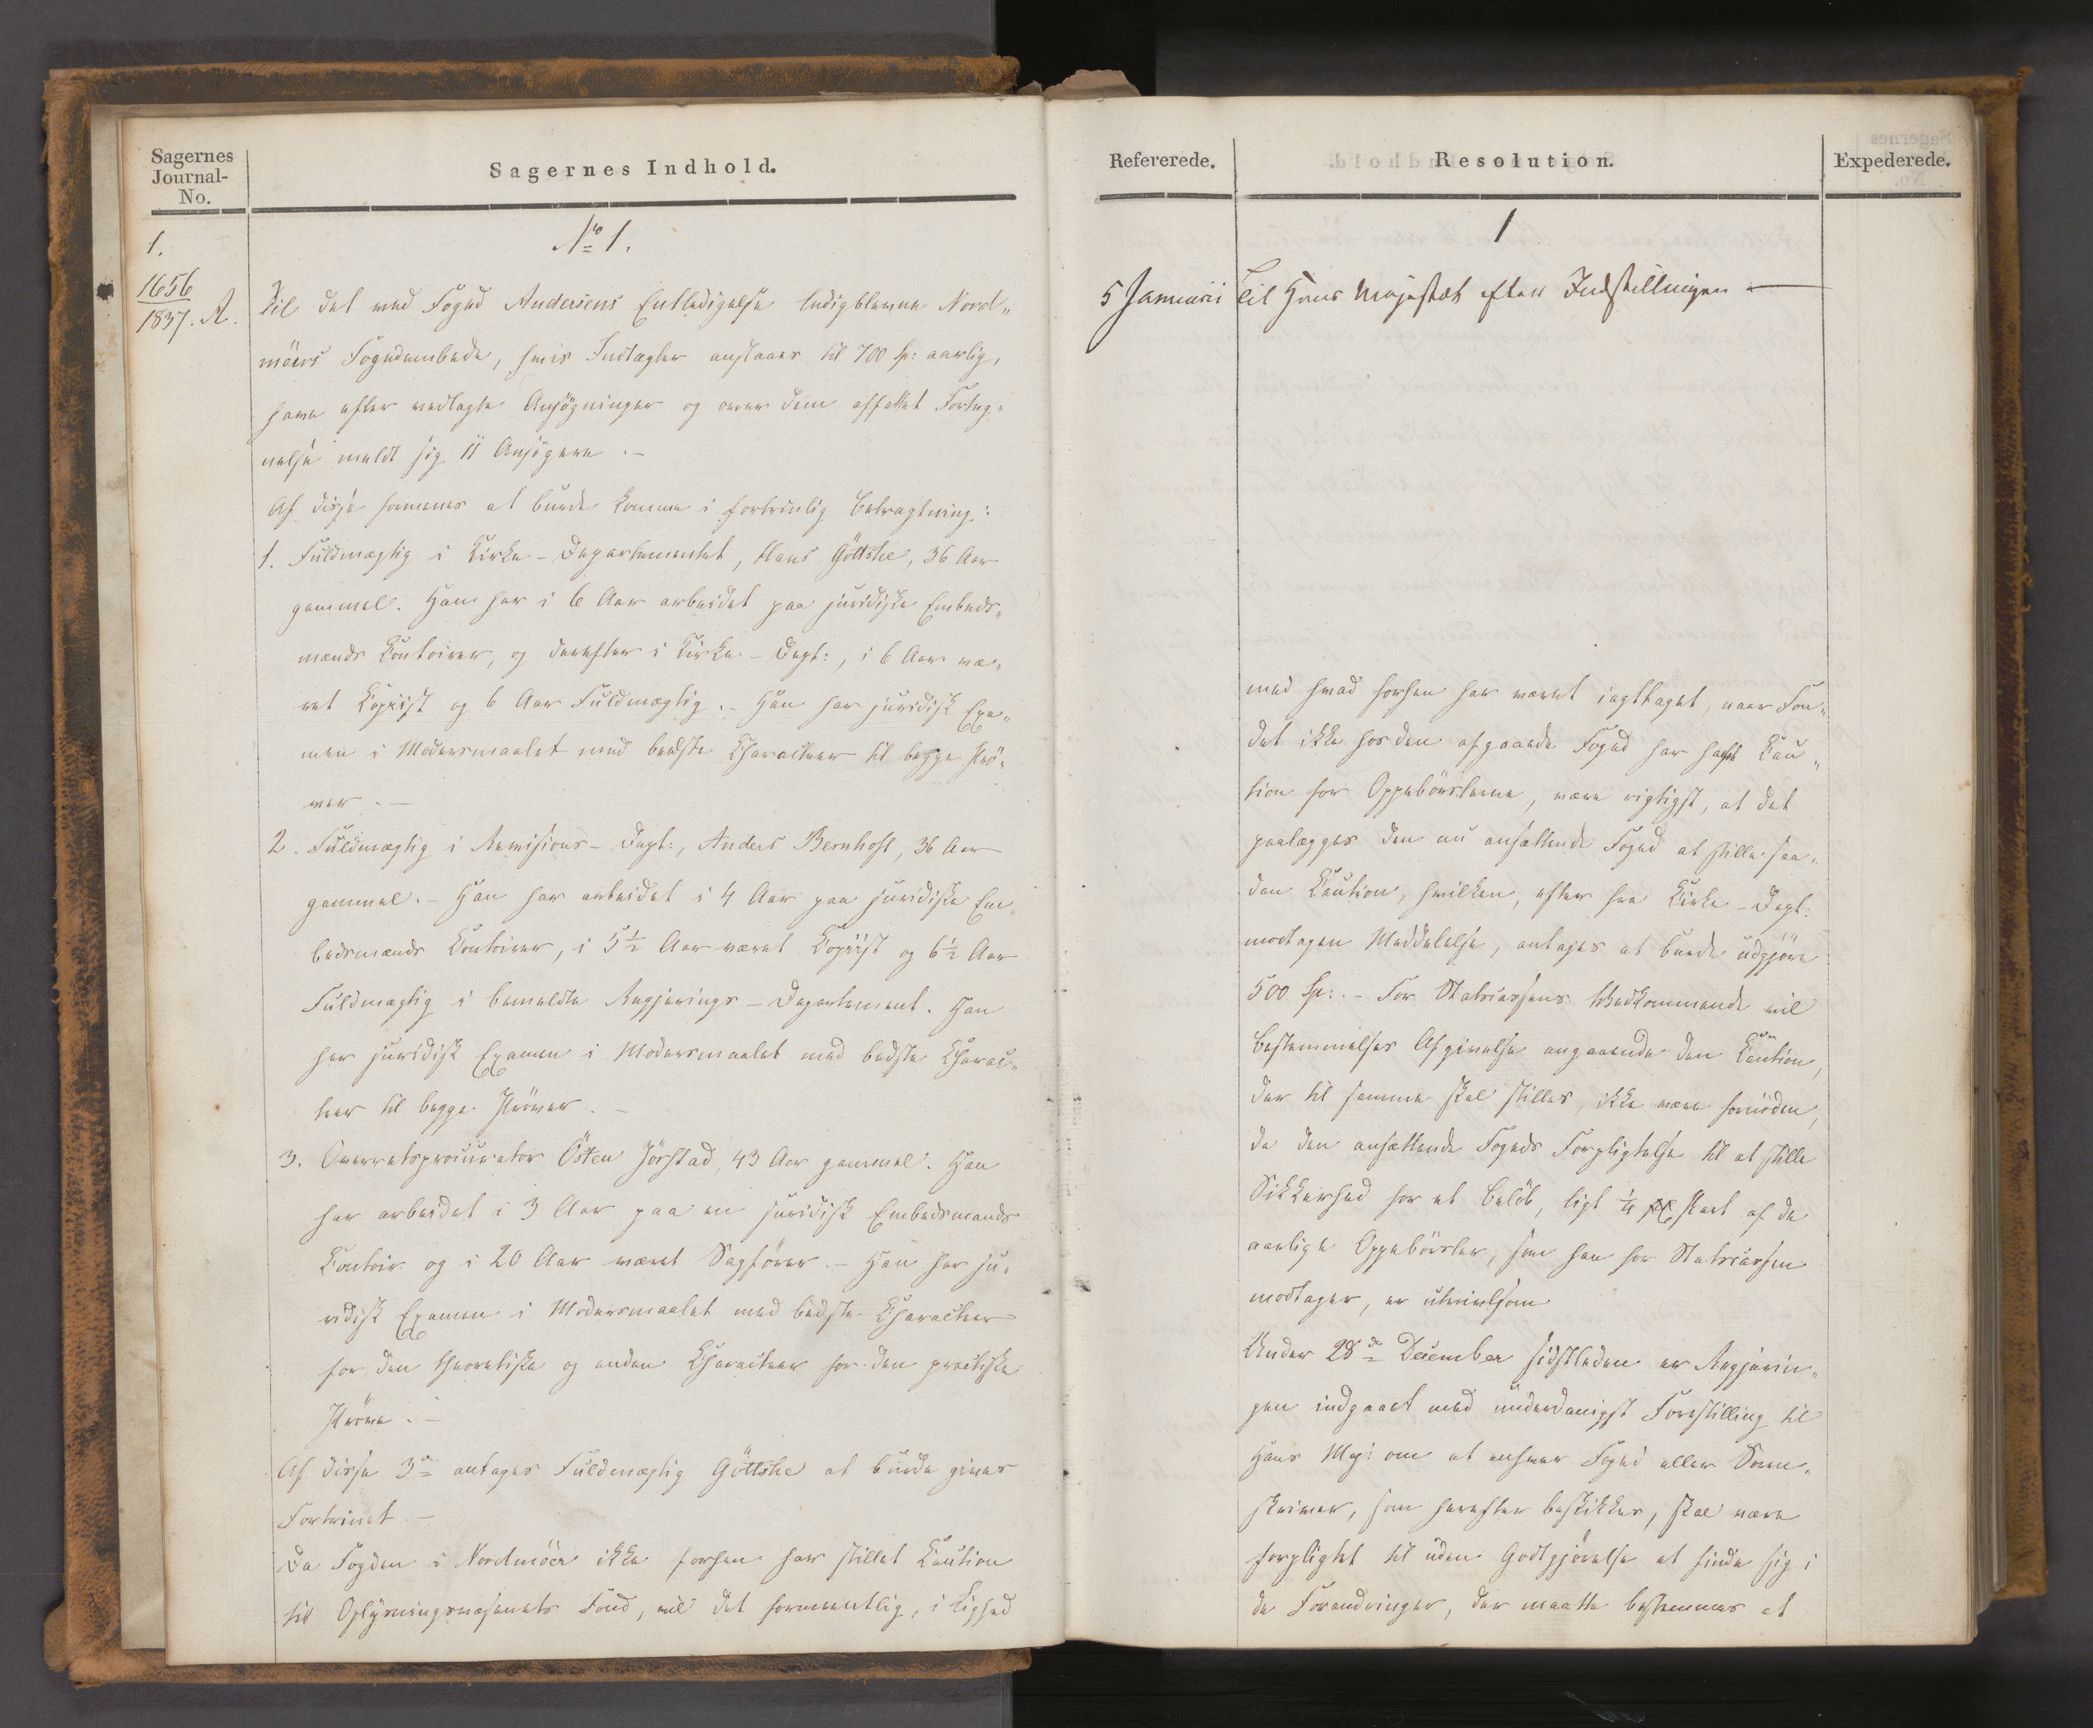 Sagernes
Journal-
No.
Sagernes Indhold.
1.
No 1.
1656
1837. A.
Til det med Foged Andersens Entledigelse ledigblevne Nord„
möers Fogedembede, hvis Indtægter anslaaes til 700 Sp: aarlig,
have efter vedlagte Ansögninger og over dem affattet Forteg„
nelse meldt sig 11 Ansögere .–
Af disse formenes at burde komme i fortrinlig Betragtning:
1. Fuldmægtig i Kirke-Departementet, Hans Göttske, 36 Aar
gammel. Han har i 6 Aar arbeidet paa juridiske Embeds„
mænds Contoirer, og derefter i Kirke-Dept:, i 6 Aar væ„
ret Copiist og 6 Aar Fuldmægtig .– Han har juridisk Exa„
men i Modersmaalet med bedste Characteer til begge Prö„
ver .–
2. Fuldmægtig i Revisions-Dept:, Anders Bernhoft, 36 Aar
gammel .– Han har arbeidet i 4 Aar paa juridiske Em„
bedsmænds Contoirer, i 5½ Aar været Copiist og 6½ Aar
Fuldmægtig i bemeldte Regjerings-Departement. Han
har juridisk Examen i Modersmaalet med bedste Charac„
teer til begge Pröver .–
3. Overretsprocurator Östen Jörstad, 43 Aar gammel. Han
har arbeidet i 3 Aar paa en juridisk Embedsmands
Contoir og i 20 Aar været Sagförer .– Han har ju„
ridisk Examen i Modersmaalet med bedste Characteer
for den theoretiske og anden Characteer for den practiske
Pröve .–
Af disse 3de antages Fuldmægtig Göttske at burde gives
Fortrinet .–
Da Fogden i Nordmöer ikke forhen har stillet Caution
til Oplysningsvæsenets Fond, vil det formeentlig, i Lighed
Refererede.
Resolution.
Expederede.
1
5 Januarii
Til Hans Majestæt efter Indstillingen —
med hvad forhen har været iagttaget, naar Fon„
det ikke hos den afgaaede Foged har havt Cau„
tion for Oppebörslerne, være rigtigst, at det
paalægges den nu ansættende Foged at stille saa„
dan Caution, hvilken, efter fra Kirke-Dept:
modtagen Meddelelse, antages at burde udgjöre
500 Sp: .– For Statscassens Vedkommende vil
Bestemmelses Afgivelse angaaende den Caution,
der til samme skal stilles, ikke være fornöden,
da den ansættende Fogeds Forpligtelse til at stille
Sikkerhed for et Belöb, ligt ¼ Part af de
aarlige Oppebörsler, som han for Statscassen
modtager, er utvivlsom
Under 28de December sidstleden er Regjerin„
gen indgaaet med underdanigst Forestilling til
Hans Maj: om at enhver Foged eller Soren„
skriver, som herefter beskikkes, skal være
forpligtet til uden Godtgjörelse at finde sig i
de Forandringer, der maatte bestemmes at